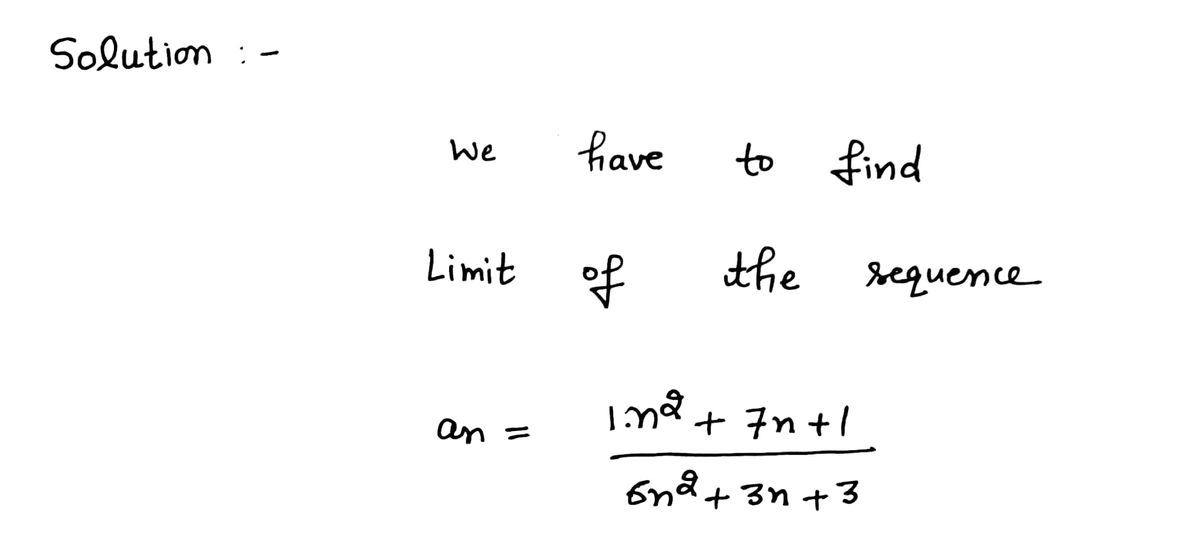 Solution :-
We have to find
Limit of the sequence
an = 1.n² + 7n + 1
6n² + 3n + 3